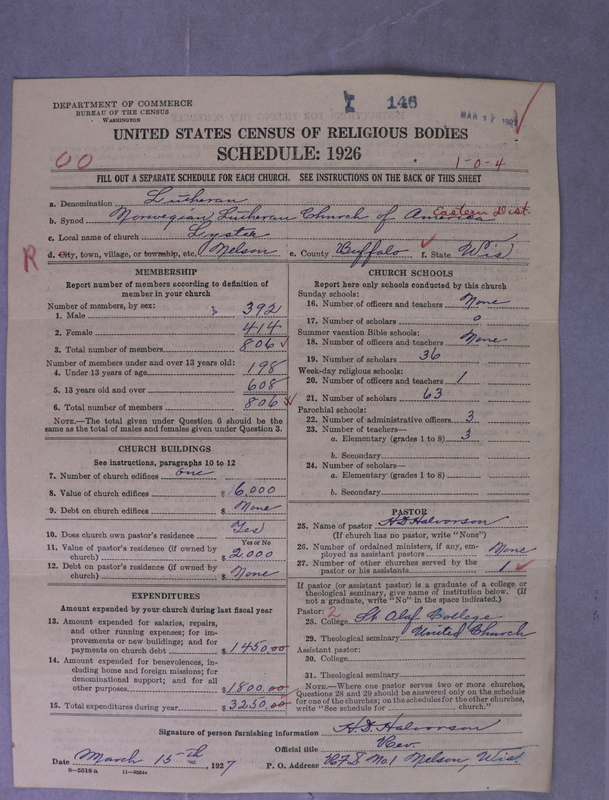 DEPARTMENT OF COMMERCE
BUREAU OF THE CENSUS
WASHINGTON
I 146
MAR 17 1927
UNITED STATES CENSUS OF RELIGIOUS BODIES
SCHEDULE: 1926
00
1-0-4
FILL OUT A SEPARATE SCHEDULE FOR EACH CHURCH. SEE INSTRUCTIONS ON THE BACK OF THIS SHEET
a. Denomination Lutheran
b. Synod Norwegian Lutheran Church of America Eastern Dist.
c. Local name of church Lyster
R
d. City, town, village, or township, etc. Nelson e. County Buffalo f. State Wis
MEMBERSHIP
Report number of members according to definition of
member in your church
Number of members, by sex:
1. Male 392
2. Female 414
3. Total number of members 806
Number of members under and over 13 years old:
4. Under 13 years of age 198
5. 13 years old and over 608
6. Total number of members 806
NOTE.—The total given under Question 6 should be
same as the total of males and females given under Question 3.
CHURCH BUILDINGS
See instructions, paragraphs 10 to 12
7. Number of church edifices one
8. Value of church edifices $ 6,000
9. Debt on church edifices $ None
10. Does church own pastor's residence? Yes
Yes or No
11. Value of pastor's residence (if owned by
church) $ 2,000
12. Debt on pastor's residence (if owned by
church) $ None
EXPENDITURES
Amount expended by your church during last fiscal year
13. Amount expended for salaries, repairs,
and other running expenses; for im-
provements or new building; and for
payments on church debt $ 1450.00
14. Amount expended for benevolences, in-
cluding home and foreign missions; for
denominational support; and for all
other purposes $ 1800.00
15. Total expenditures during year $ 3250.00
CHURCH SCHOOLS
Report here only schools conducted by this church
Sunday schools:
16. Number of officers and teachers None
17. Number of scholars 0
Summer vacation Bible schools:
18. Number of officers and teachers None
19. Number of scholars 36
Week-day religious schools:
20. Number of officers and teachers 1
21. Number of scholars 63
Parochial schools:
22. Number of administrative officers 3
23. Number of teachers—
a. Elementary (grades 1 to 8) 3
b. Secondary
24. Number of scholars—
a. Elementary (grades 1 to 8)
b. Secondary
PASTOR
25. Name of pastor H D Halvorson
(If church has no pastor, write "None")
26. Number of ordained ministers, if any, em-
ployed as assistant pastors None
27. Number of other churches served by the
pastor or his assistants 1
If pastor (or assistant pastor) is a graduate of a college or
theological seminary, give name of institution below. (If
not a graduate, write "No" in the space indicated.)
Pastor: 2
28. College St Olaf College
29. Theological seminary United Church
Assistant pastor:
30. College
31. Theological seminary
NOTE.—Where one pastor serves two or more churches,
Questions 28 and 29 should be answered only on the schedule
for one of the churches; on the schedules for the other churches,
write "See schedule for church."
Signature of person furnishing information H.D. Halvorson
Official title Rev.
Date March 15th, 1927 P. O. Address No 1 Nelson, Wis.
8—5518a 11—9064a